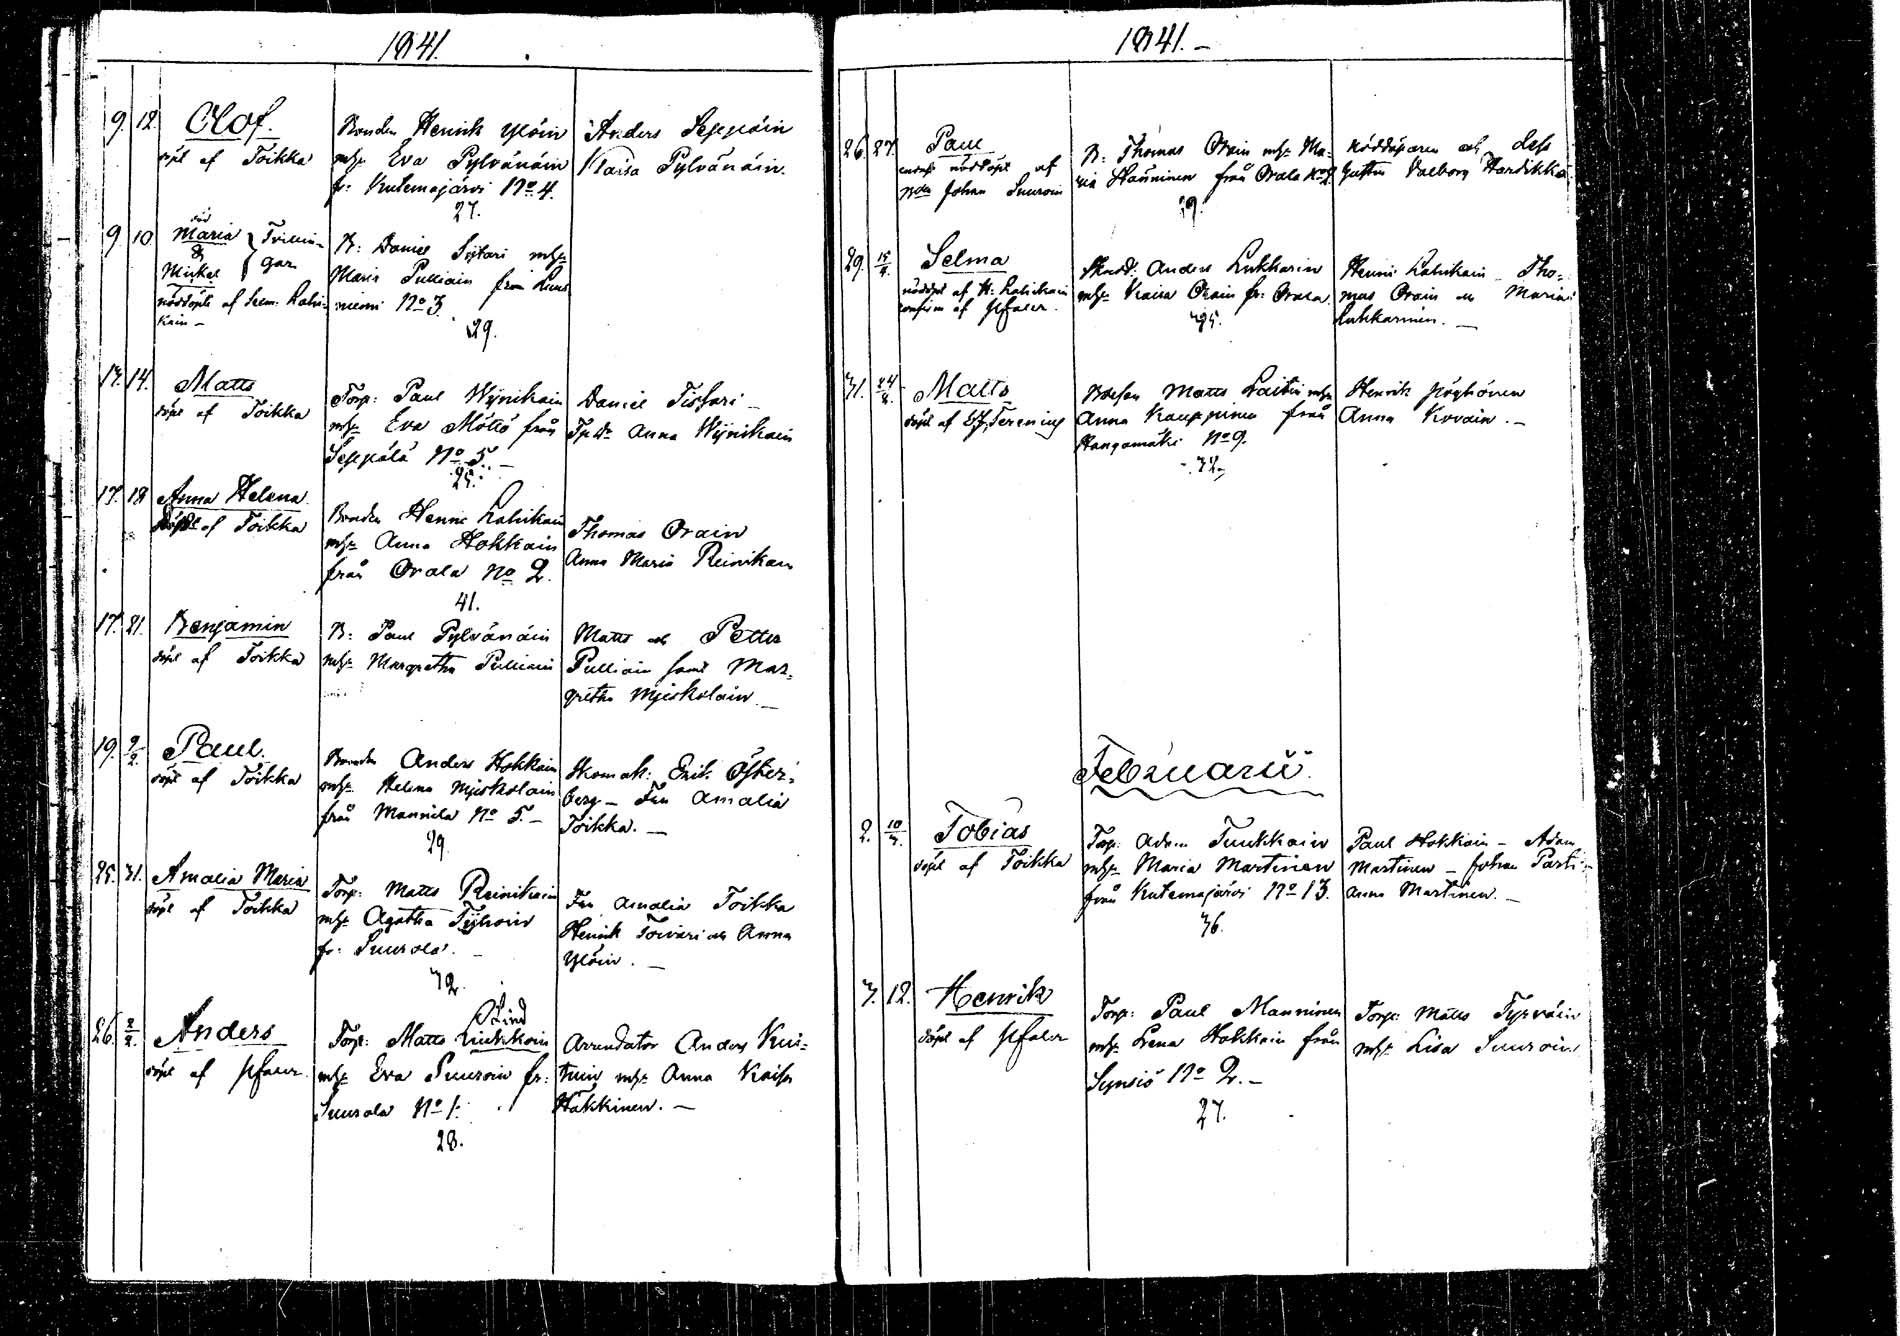 1841.
9. 12. Olof.
döpt af Toikka
Bonden Henrik Ylöin
mh: Eva Pylvänäin
fr: Kutemajärvi No 4.
27.
Anders Seppäin
Kaisa Pylvänäin.
9 10 Maria } Trillin-
& gar
Mickel
nöddöpte af Hem: Lahi-
kain –
B: Daniel Sijtari mh:
Maria Pulliain från
niemi No 3.
29.
13. 14. Matts
döpt af Toikka
Torp: Paul Wijnikain
mh: Eva Möttö från
Seppälä No 5. –
25.
Daniel Tissari –
Anna Wijnikain
17. 18 Anna Helena
döpt af Toikka
Bonden Henric Lahikain
mh: Anna Hokkain
från Orala No 2.
41.
Thomas Orain
Anna Maria Reinikain
17. 21. Benjamin
döpt af Toikka
B: Paul Pylvänäin
mh: Margretha Pulliain
Matts och Petter
Pulliain samt Mar-
gretha Mjiskolain –
19. 9/2. Paul.
döpt af Toikka
Bonden Anders Hokkain
mh: Helena Mjiskolain
från Mannila No 5. –
29
Skomak: Erik Öster-
berg – Fru Amalia
Toikka. –
25. 31. Amalia Maria
döpt af Toikka
Torp: Matts Reinikain
mh: Agatha
fr: Suurola. –
32.
Fru Amalia Toikka
Henrik Toivari och Anna
Ylöin. –
26. 2/2. Anders
döpt af
Lind
Torp: Matts
mh: Eva Suuroin fr:
Suurola No 1.
28.
Arrendator Anders Kui-
tuin mh: Anna Kaisa
Häkkinen. –
1841. –
26. 27. Paul
nöddöpt af
Johan Suuroin
B: Thomas Orain mh: Ma-
ria Hänninen från Orala No 2.
39.
nöddöparen och dess
hustru Valborg
29. Selma
nöddöpt af H: Lahikain
confirm af
Anders Lukkarin
mh: Kaisa Orain fr: Orala
35.
Henric Lahikain – Tho-
mas Orain och Maria
Lukkarinen. –
31. Matts
döpt af
Matts Laitin mh:
Anna Kauppinen från
Hangamäki No 9.
32
Henrik Pöyhönen
Anna Kovain. –
Februarii.
2. Tobias
döpt af Toikka
Torp: Adam Tuukkain
mh: Maria Martinen
från Kutemajärvi No 13.
36.
Paul Hokkain – Adam
Martinen – Johan Parti-
Anna Martinen. –
3. 12. Henrik
döpt af
Torp: Paul Manninen
mh: Lena Hokkain från
Synsiö No 2. –
27.
Torp: Matts Tyrväin
mh: Lisa Suuroin